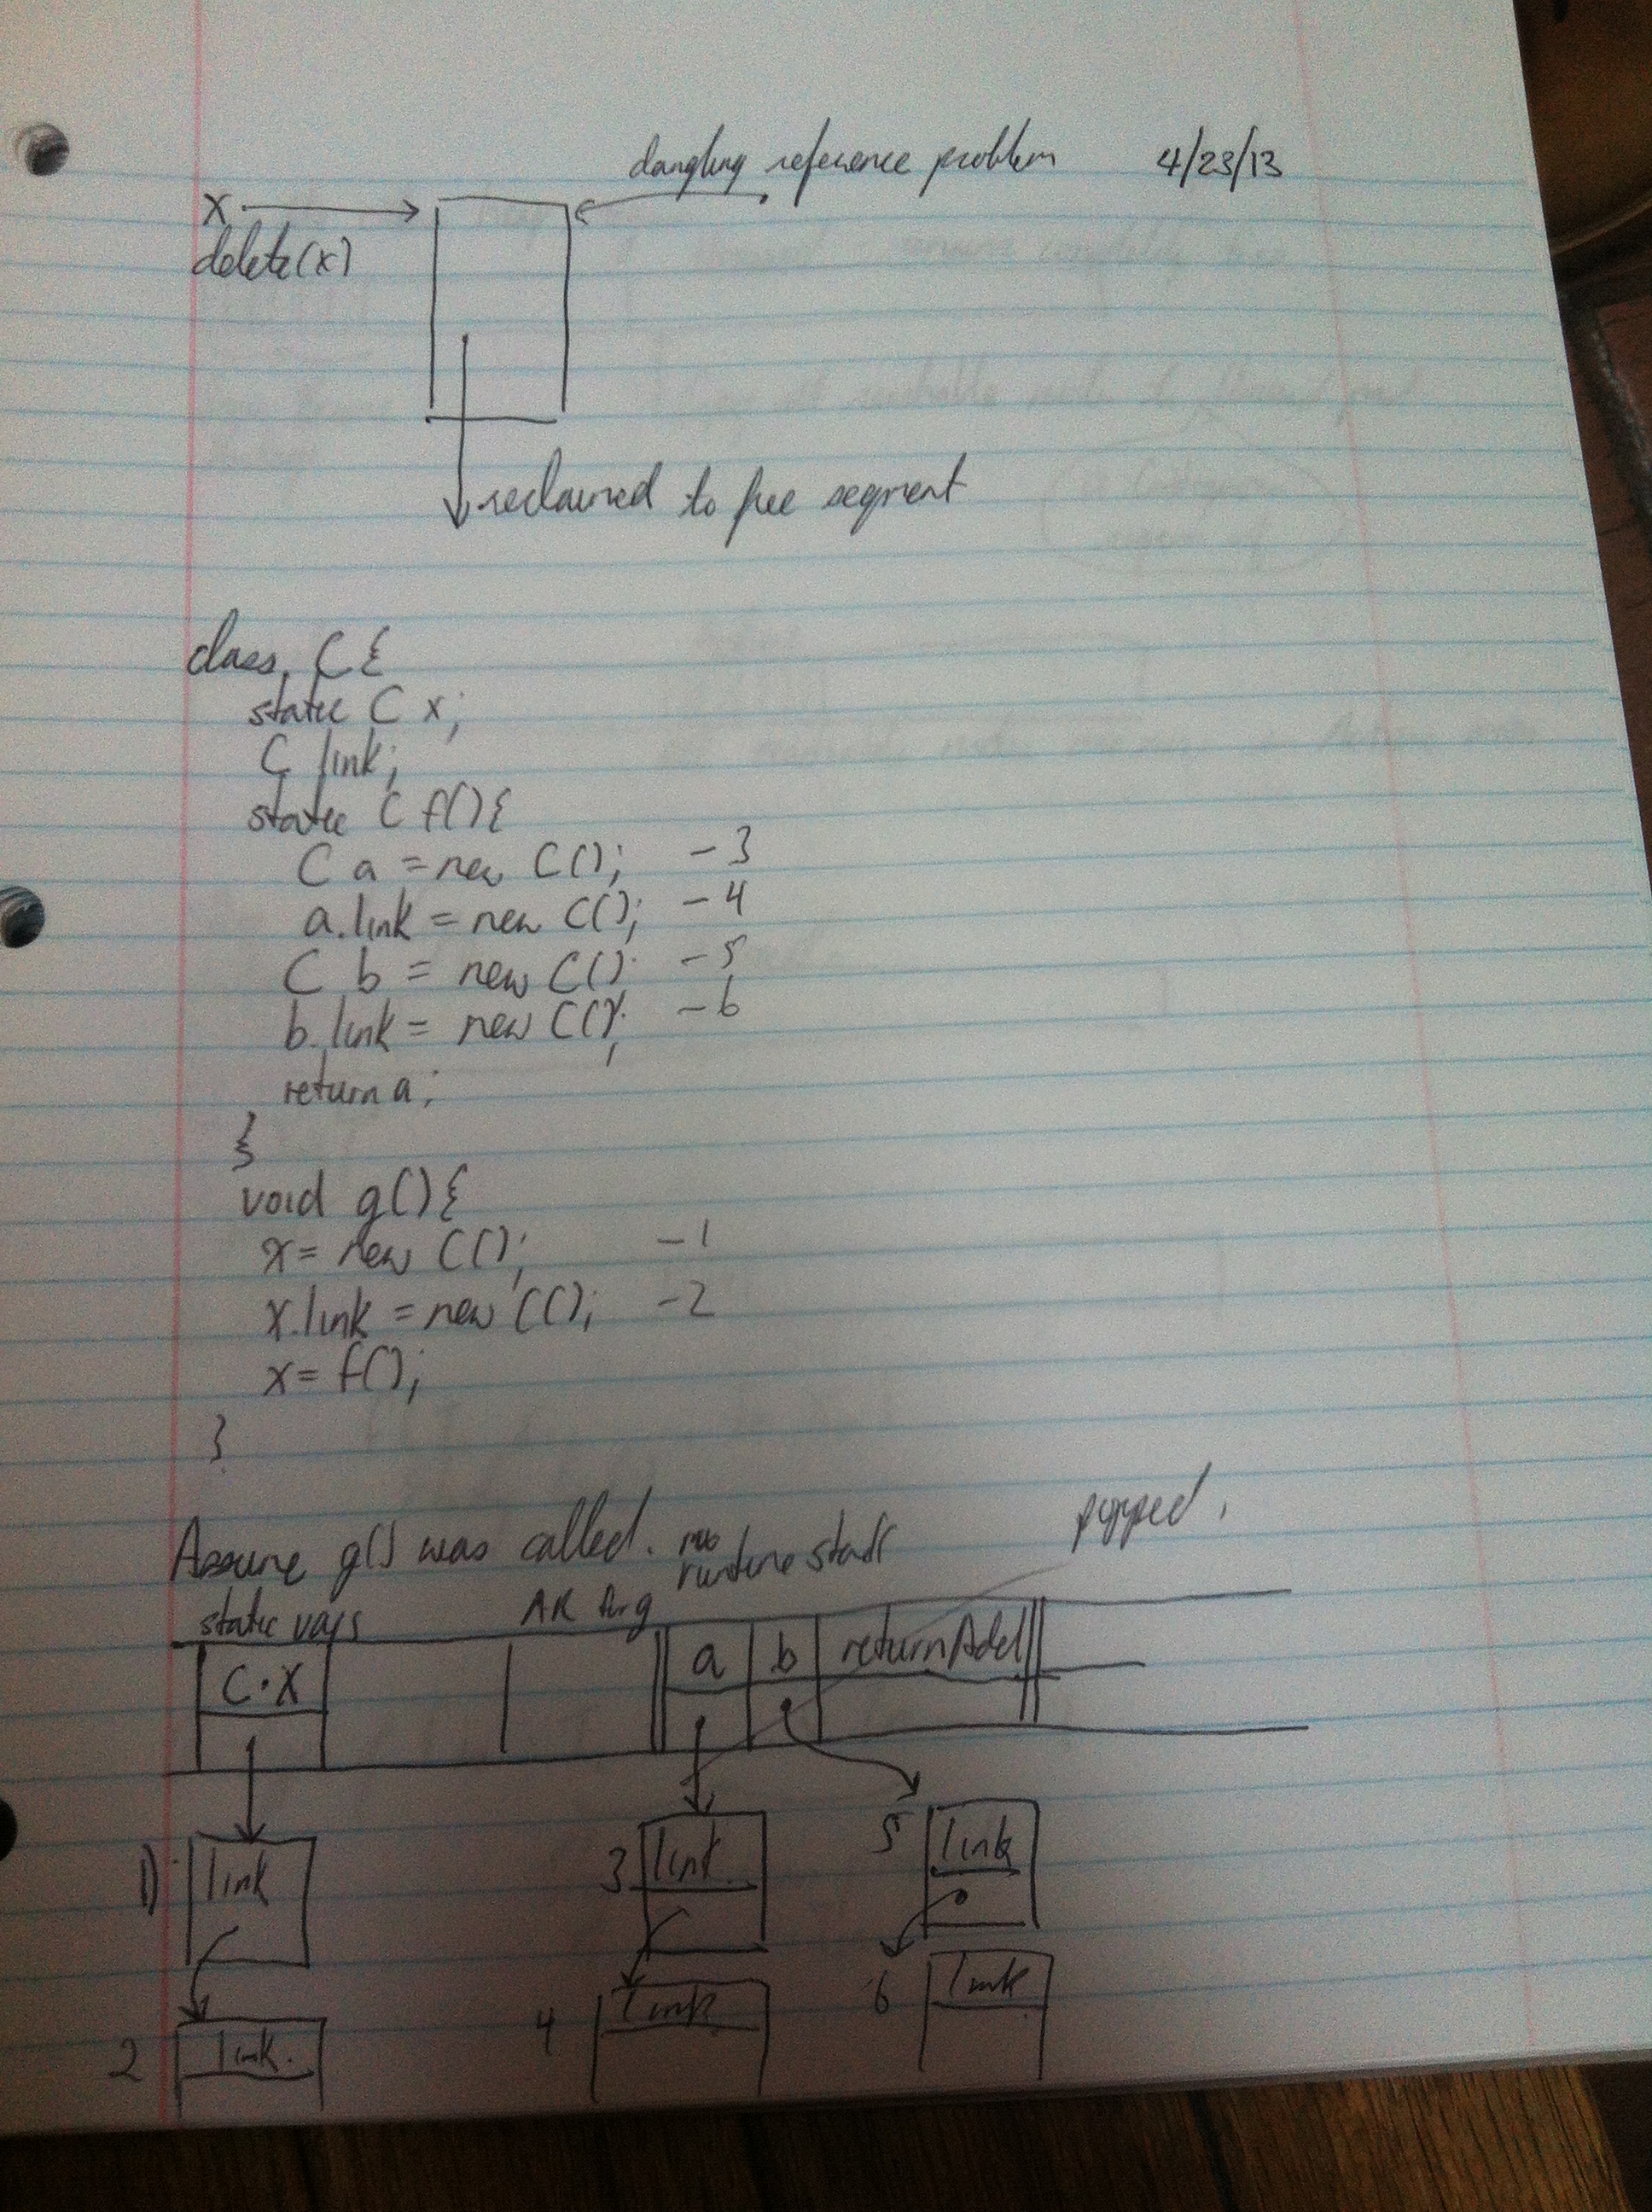 dangling reference problem 4/23/13
x
delete(x)
reclaimed to free segment
class C{
static C x;
C link;
static C f(){
C a = new C(); - 3
a.link = new C(); - 4
C b = new C(); - 5
b.link = new C(); - 6
return a;
}
void g(){
x = new C(); - 1
x.link = new C(); - 2
x = f();
}
Assume g() was called. runtime stack popped.
static vars AR for g
C.X a b return Add
1) link 3 link 5 link
2 link. 4 link 6 link